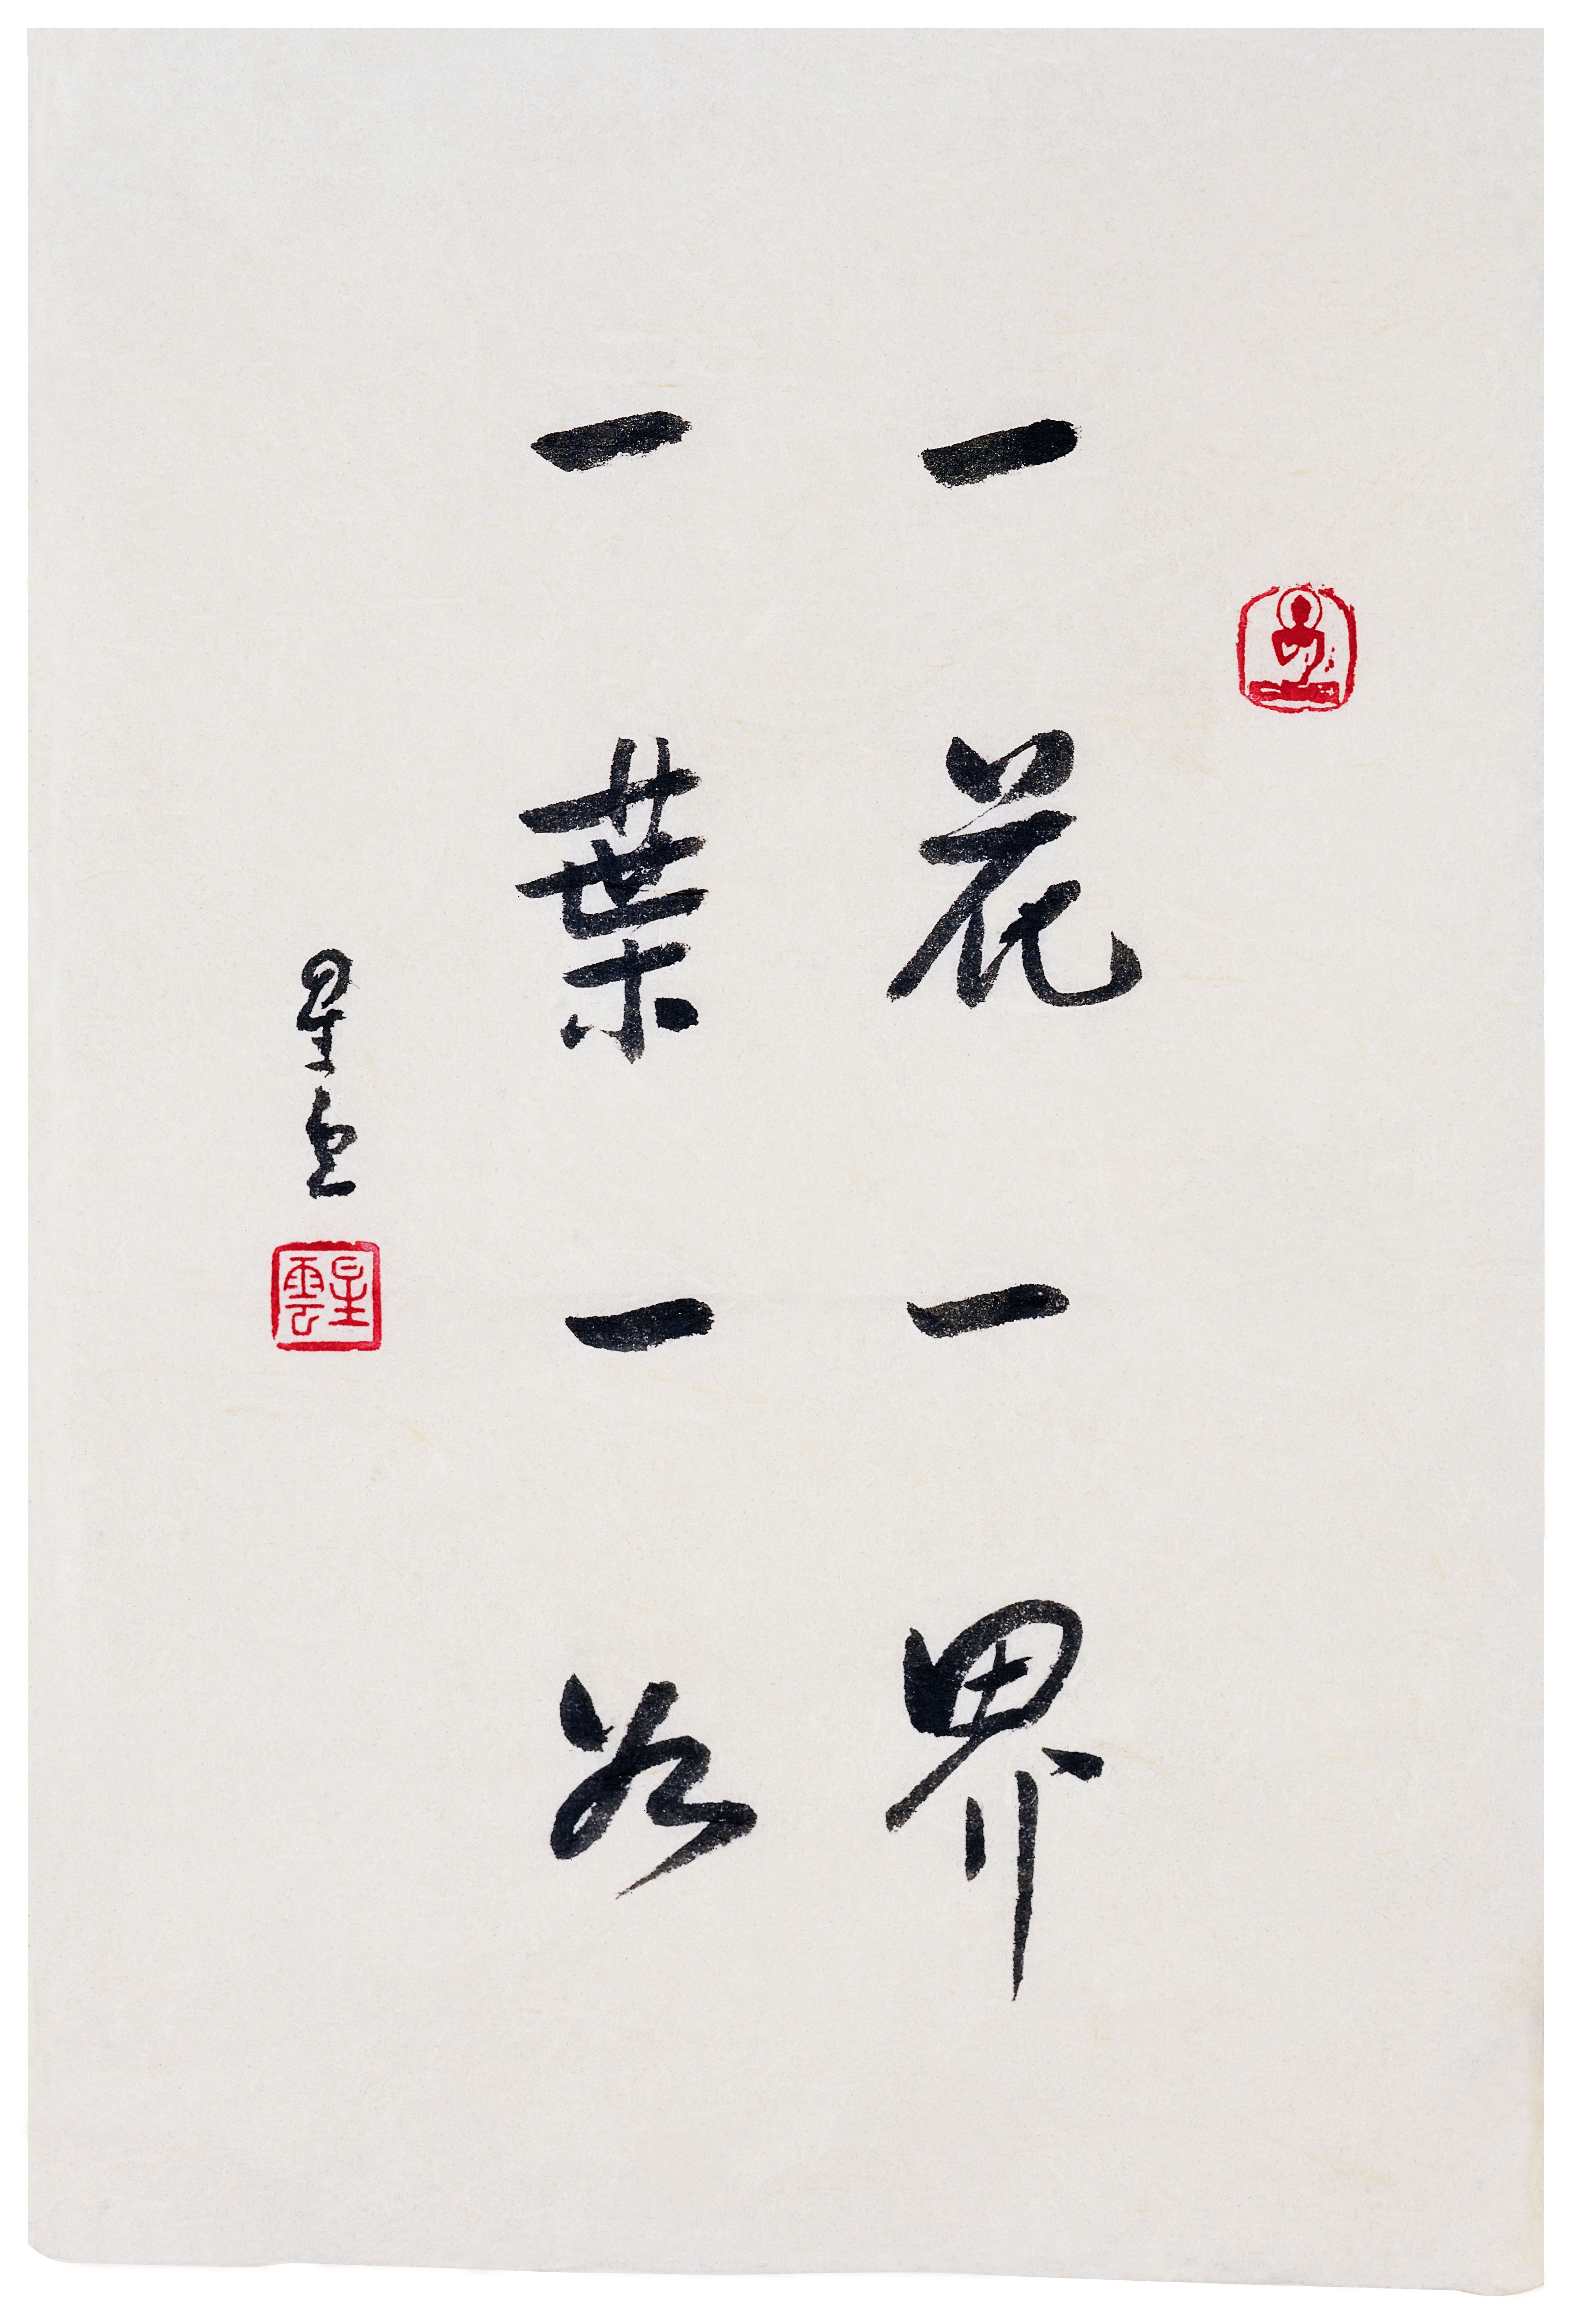 一花一界
一葉一
星云
星雲